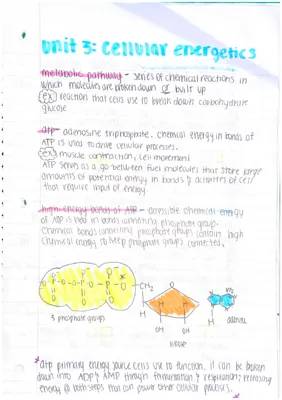 unit 3: cellular energetics
metabolic pathway - series of chemical reactions in
which molecules are broken down or built up
ex reaction that cells use to break down carbohydrate
glucose
atp - adenosine triphosphate. chemical energy in bonds of
ATP is used to drive cellular processes.
ex muscle contraction, cell movement
ATP serves as a go between fuel molecules that store large
amounts of potential energy in bonds & activities of cell
that require input of energy
high energy bonds of ATP - accessible chemical energy
of ATP is held in bonds connecting phosphate group.
chemical bonds connecting phosphate groups contain high
chemical energy to keep phosphate groups connected.
O O O
O-P-O-P-O-P-O-CH2
O O O
NH2
H
3 phosphate groups
OH OH
ribose
adenine
*atp primary energy source cells use to function. it can be broken
down into ADP & AMP through fermentation & respiration; releasing
energy @ both steps that can power other cellular processes.